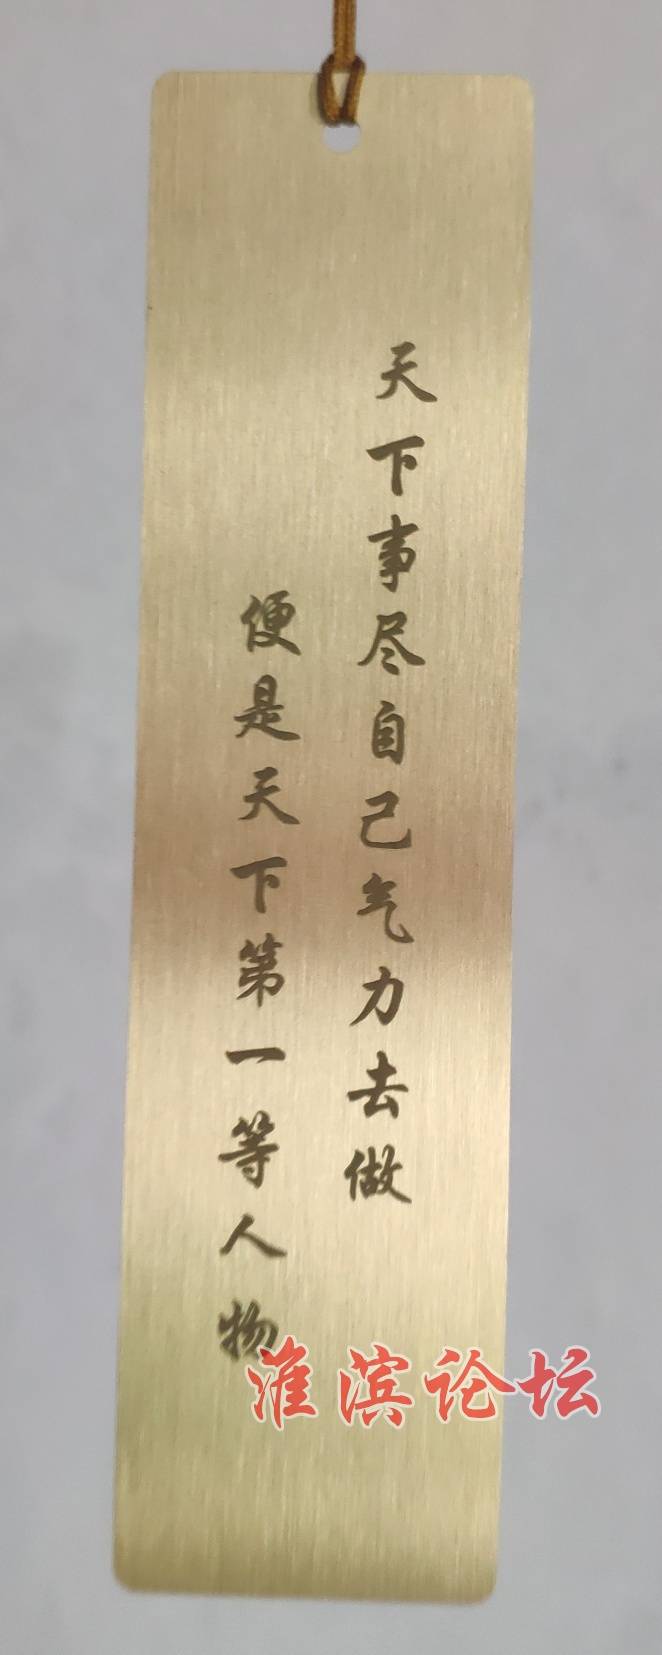 天下事尽自己气力去做
便是天下第一等人物
淮滨论坛